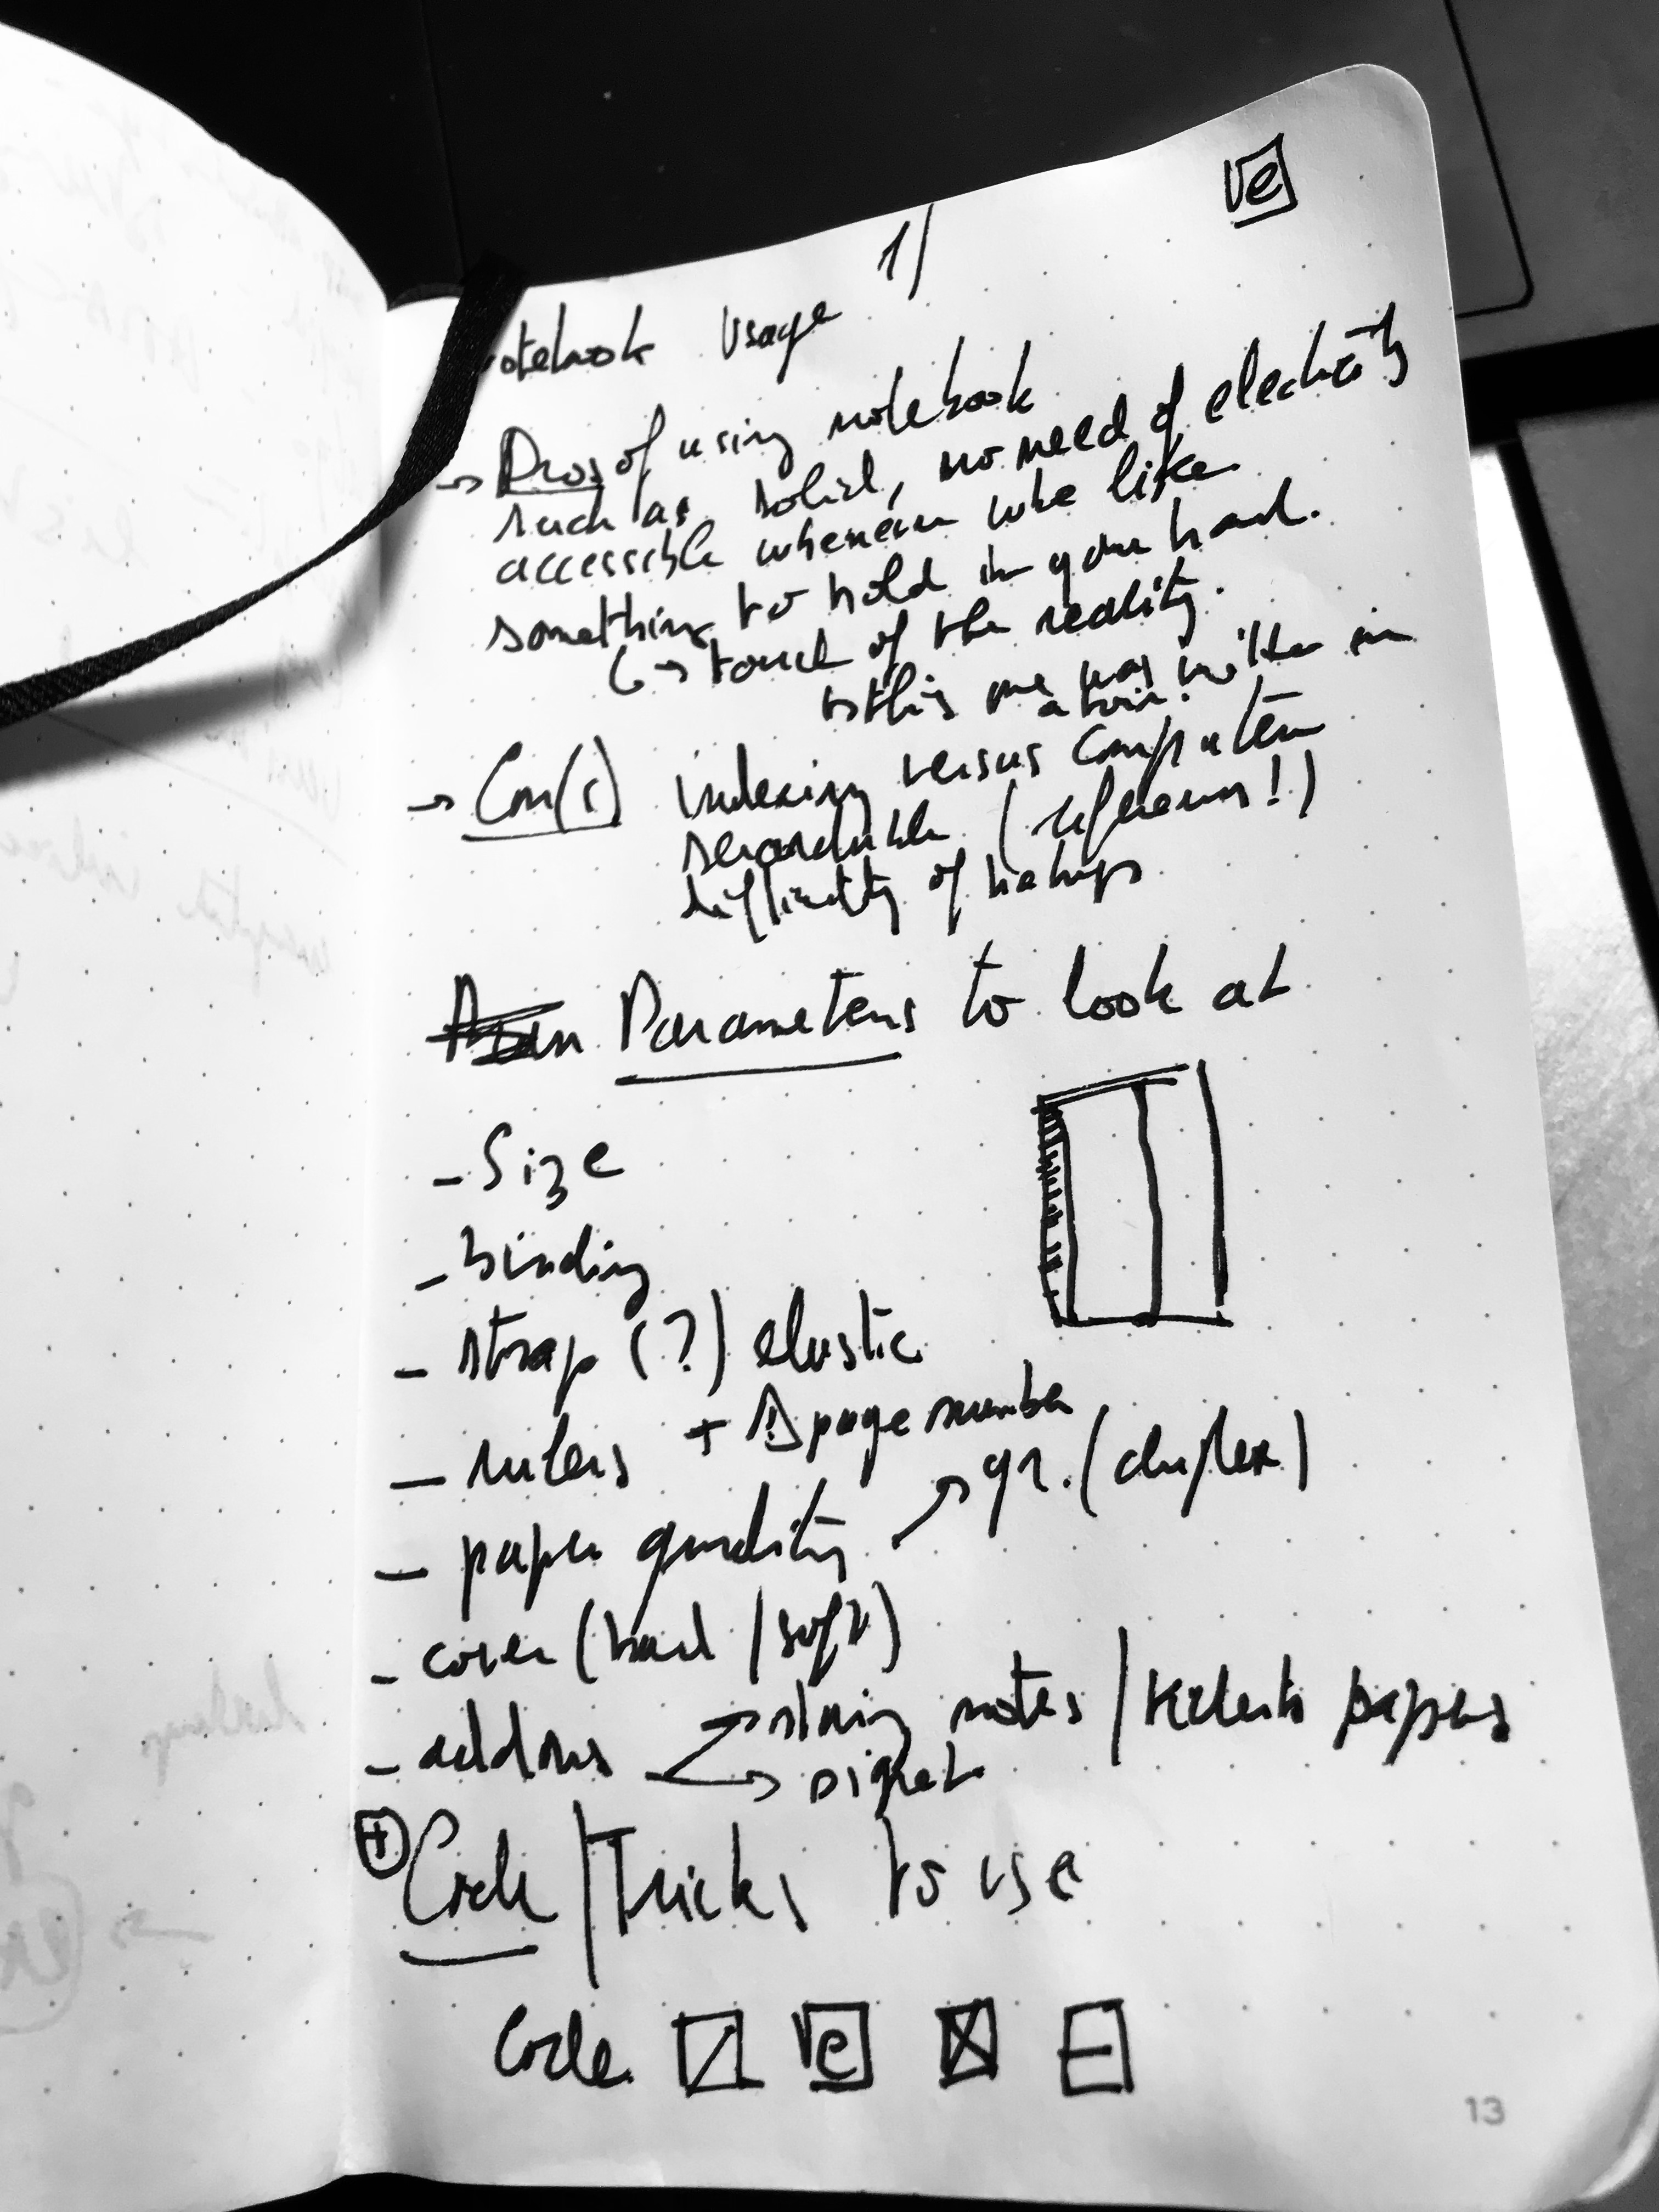 e
1/
Notebook Usage
→ Pros of using notebook
such as solid, no need of electricity
accessible whenever like
something to hold in your hand.
↳ touch of the reality.
↳ this one was written in
a train.
→ Con(s) indexing versus computer
searchable (references!)
difficulty of backups
Parameters to look at
- Size
- binding
- strap (?) elastic
- rulers + page number
- paper quality → gr. (duplex)
- cover (hard / soft)
- addons notes / papers
signet
+ Code / Tricks to use
Code e
13